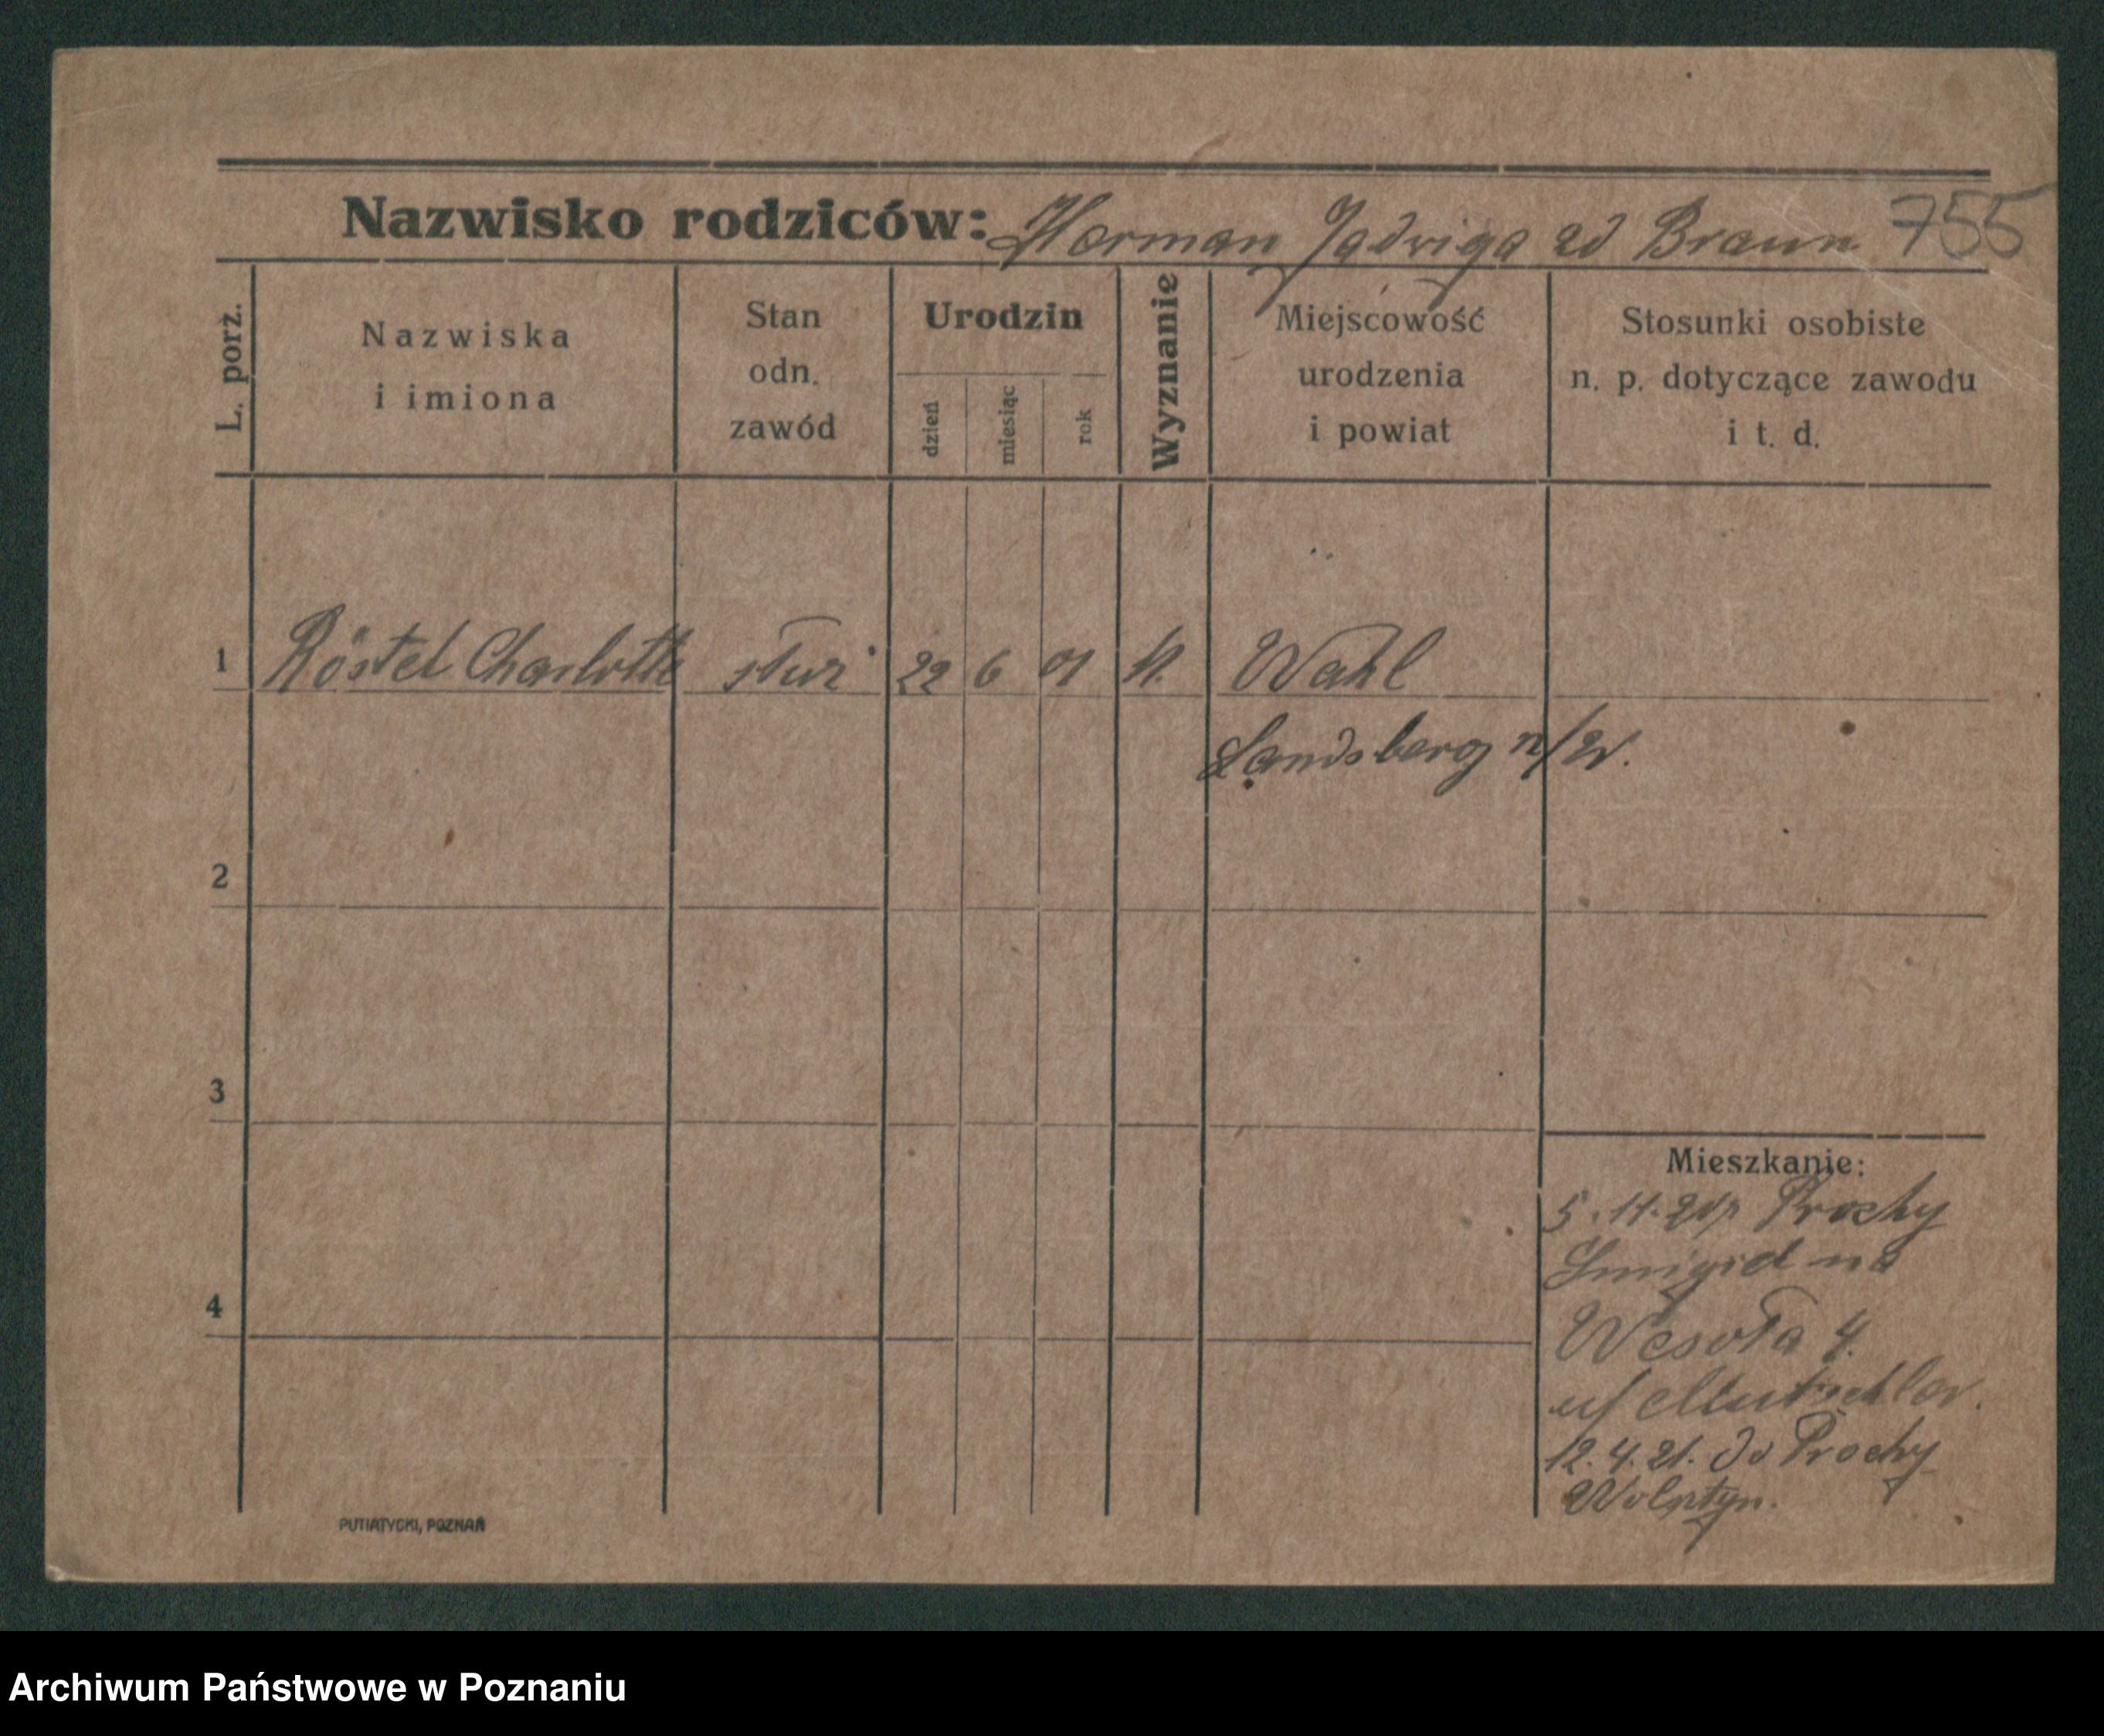 Nazwisko rodziców: Herman Jadwiga zd Braun 755
L. porz.
Nazwiska
i imiona
Stan
odn.
zawód
Urodzin
dzień
miesiąc
rok
Wyznanie
Miejscowość
urodzenia
i powiat
Stosunki osobiste
n. p. dotyczące zawodu
i t. d.
1 Röstel Charlotte służ 22 6 01 Wahl
Landsberg n/W.
2
3
4
Mieszkanie:
5. 11. 20 Prochy
Śmigiel na
Wesoła 4.
u/
12. 4. 21. do Prochy
Wolsztyn.
PUTIATYCKI, POZNAŃ
Archiwum Państwowe w Poznaniu